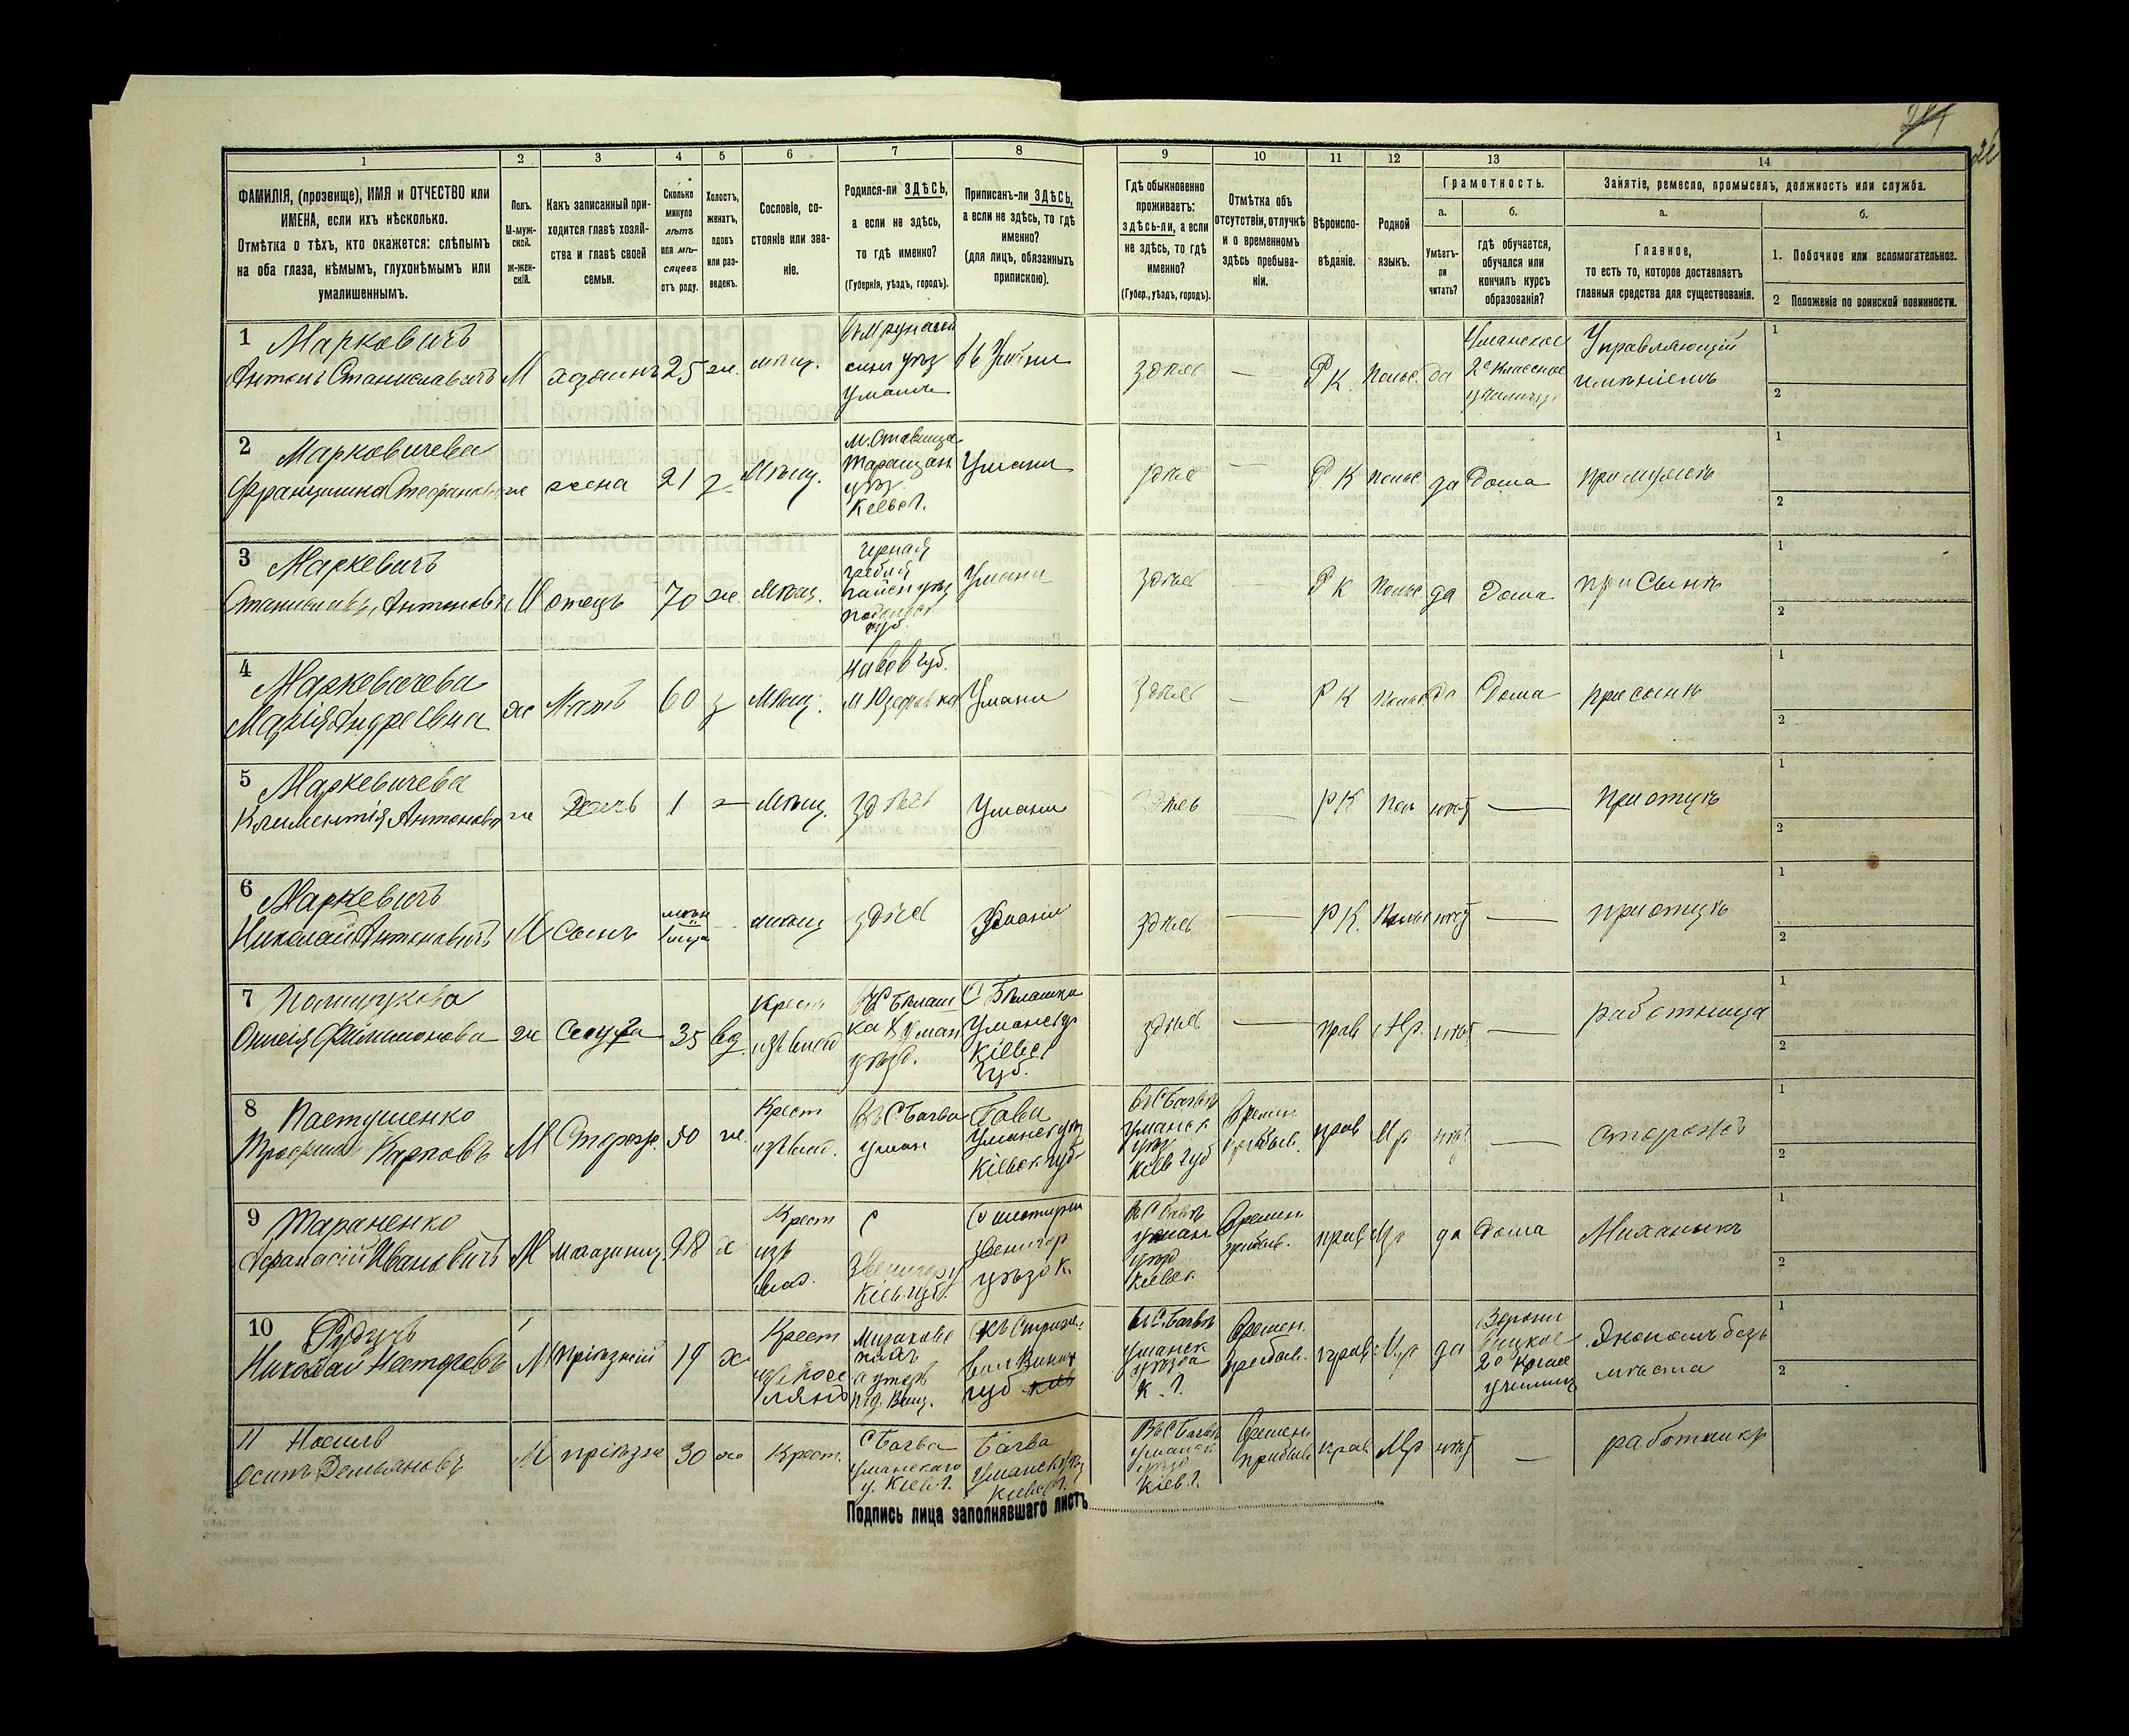 26
1 2 3 4 5 6 7 8 9 10 11 12 13 14
ФАМИЛІЯ, (прозвище), ИМЯ и ОТЧЕСТВО или
ИМЕНА, если ихъ нѣсколько.
Отмѣтка о тѣхъ, кто окажется: слѣпымъ
на оба глаза, нѣмымъ, глухонѣмымъ или
умалишеннымъ.
Полъ.
М-муж-
ской.
ж-жен-
скій.
Какъ записанный при-
ходится главѣ хозяй-
ства и главѣ своей
семьи.
Сколько
минуло
лѣтъ
или мѣ-
сяцевъ
отъ роду.
Холостъ,
женатъ,
вдовъ
или раз-
веденъ.
Сословіе, со-
стояніе или зва-
ніе.
Родился-ли ЗДѢСЬ,
а если не здѣсь,
то гдѣ именно?
(Губернія, уѣздъ, городъ).
Приписанъ-ли ЗДѢСЬ,
а если не здѣсь, то гдѣ
именно?
(для лицъ, обязанныхъ
припискою).
Гдѣ обыкновенно
проживаетъ:
здѣсь-ли, а если
не здѣсь, то гдѣ
именно?
(Губер., уѣздъ, городъ).
Отмѣтка объ
отсутствіи, отлучкѣ
и о временномъ
здѣсь пребыва-
ніи.
Вѣроиспо-
вѣданіе.
Родной
языкъ.
Грамотность.
а.
Умѣетъ-
ли
читать?
б.
гдѣ обучается,
обучался или
кончилъ курсъ
образованія?
Занятіе, ремесло, промыселъ, должность или служба.
а.
Главное,
то есть то, которое доставляетъ
главныя средства для существованія.
б.
1. Побочное или вспомогательное.
2 Положеніе по воинской повинности.
1 Марковичъ
Антонъ Станиславичъ М хозяинъ 25 ж. мѣщ.
Уманск
здѣсь — Р К Польс. да
Уманское
2х классное
училище
Управляющій
имѣніемъ
1
2
2 Марковичева
Францишка Стефанов ж жена 21 з Мѣщ.
М. Ставища
Таращан
уѣз
Кіевс Г.
Умани
здѣсь — Р К польс. да Дома при мужѣ
1
2
3 Маркевичъ
Станиславъ Антонов М отецъ 70 ж. Мѣщ.
Черная
гребля
Гайсен уѣзд
Подольск
губ.
Умани
здѣсь — Р К Польс. да Дома при Сынѣ
1
2
4 Маркевичева
Марія Андреевна ж Мать 60 з Мѣщ.
М Юзефовка
Умани
здѣсь — Р К Польс да Дома при сынѣ
1
2
5 Маркевичева
Климентія Антонова ж Дочь 1 — Мѣщ. здѣсь Умани
здѣсь — Р К Пол нѣтъ — при отцѣ
1
2
6 Маркевичъ
Николай Антоновичъ М Сынъ мѣщ здѣсь Умани
здѣсь — Р К. Польс нѣтъ — при отцѣ
1
2
7 Полищукова
Филимонова ж Слуга 35 вд.
Крест
изъ влад
Уман
уѣзд.
С Бѣлашки
Уманск у
Кіевс
Губ.
здѣсь — прав Мр. нѣт — работница
1
2
8 Пастушенко
Трофимъ Карповъ М Сторож. 50 ж.
Крест
изъ влад.
Въ С Багва
Уман
Багва
Уманск уѣз
Кіевск губ
Въ С Багвѣ
Уманск
уѣз
Кіев губ
Времен
прибыв.
прав Мр нѣт — Сторожъ
1
2
9 Тараненко
Афанасій Ивановичъ М магазинщ. 28 х
Крест
изъ
влад.
С
Звенигор у
Кіев губ.
Звенигор
уѣзд К.
Въ С Багвѣ
уман
уѣзд
Кіевск
Времен
прибыв.
прав Мр да Дома Миханикъ
1
2
10
Николай Несторовъ М Пріѣзжій 19 х
Крест
Времен.
прибыв.
прав Мр да
училищ
Экономъ безъ
мѣста
Въ С. Багвѣ
Уманск
уѣзда
К. Г.
1
2
11 Носиль
Осипъ Демьяновъ М пріѣзж 30 ж Крест.
С Багва
Уманскаго
у. Кіев. Г.
Багва
Уманск уѣз
Кіевс Г.
Въ С Багвѣ
Уманск
уѣзд
Кіев. Г.
Времен
прибыв
прав Мр нѣтъ — работникъ
Подпись лица заполнявшаго листъ